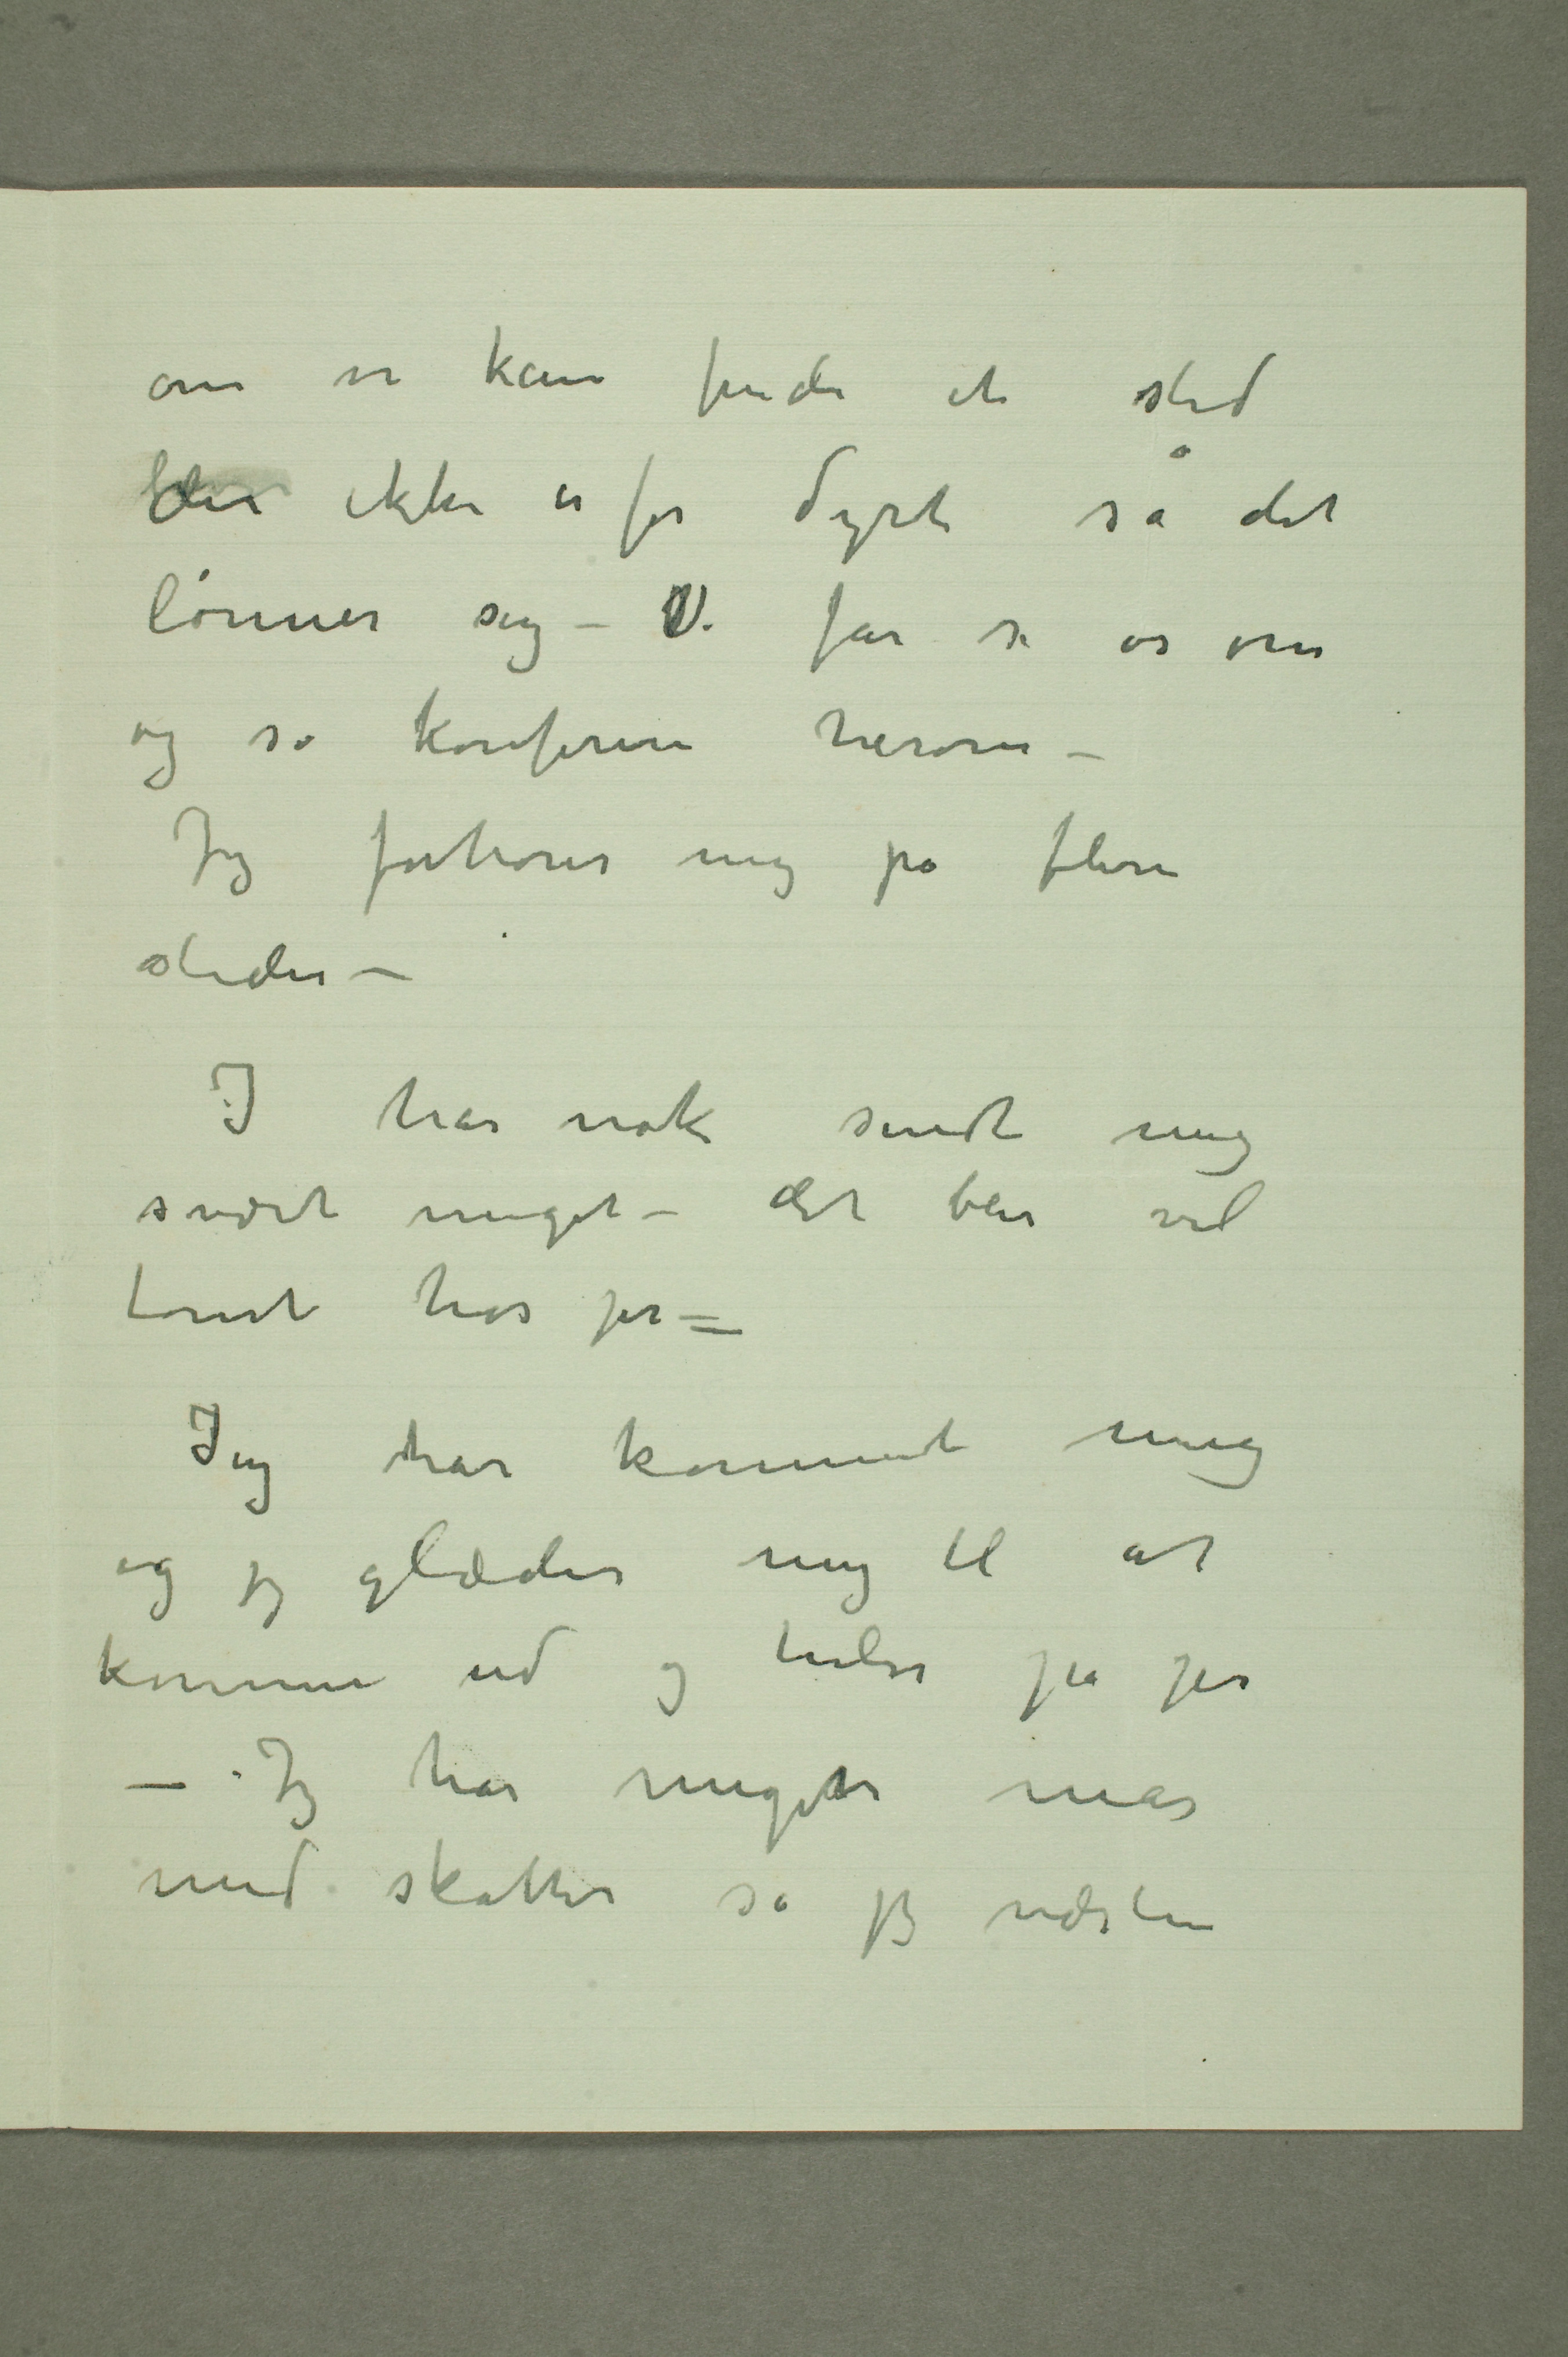 om vi kan finde et sted
der ikke er for dyrt så det
lønner sig – Vi får se os om
og så konferere herom –
Jeg forhører mig på flere
steder –
I har nok sendt mig
svært meget – det blir vel
tomt hos jer –
Jeg har kommet mig
og jeg glæder mig til at
komme ud og hilse på jer
– Jeg har meget mas
med skatter så jeg næsten